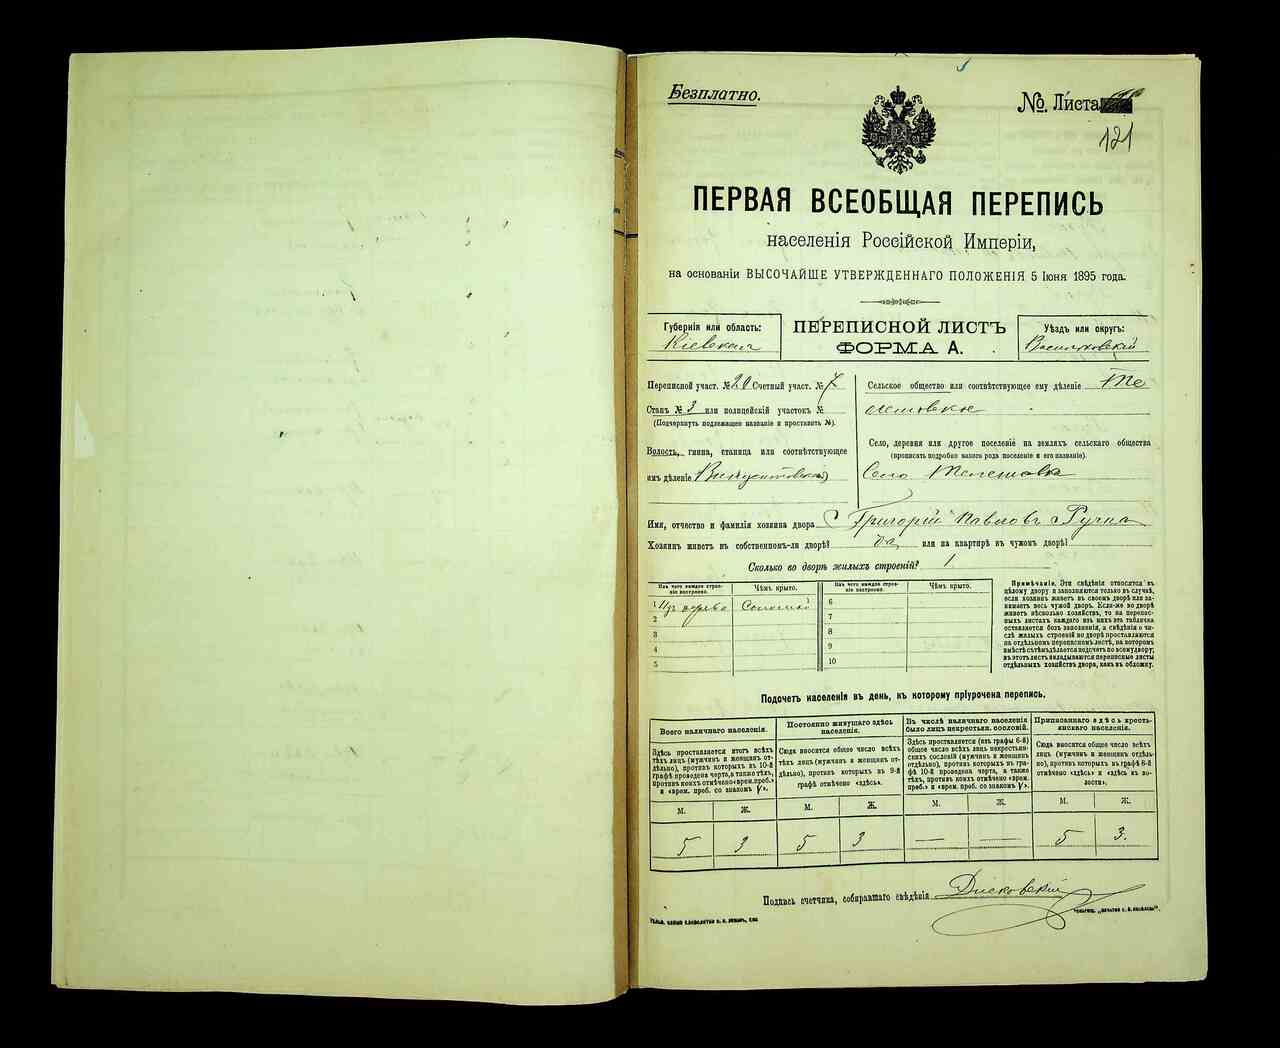 Безплатно.
№. Листа
121
ПЕРВАЯ ВСЕОБЩАЯ ПЕРЕПИСЬ
населенія Россійской Имперіи,
на основаніи ВЫСОЧАЙШЕ УТВЕРЖДЕННАГО ПОЛОЖЕНІЯ 5 Іюня 1895 года.
Губернія или область:
Кіевская
ПЕРЕПИСНОЙ ЛИСТЪ
ФОРМА А.
Уѣздъ или округъ:
Васильковскій
Переписной участ. № 20 Счетный участ. № 7
Станъ № 3 или полицейскій участокъ №
(Подчеркнуть подлежащее названіе и проставить №).
Волость, гмина, станица или соотвѣтствующее
имъ дѣленіе
Сельское общество или соотвѣтствующее ему дѣленіе
Село, деревня или другое поселеніе на земляхъ сельскаго общества
(прописать подробно какого рода поселеніе и его названіе).
Село
Имя, отчество и фамилія хозяина двора Григорій Павловъ
Хозяинъ живетъ въ собственномъ-ли дворѣ? да или на квартирѣ въ чужомъ дворѣ?
Сколько во дворѣ жилыхъ строеній? 1
Изъ чего каждое строе-
ніе построено.
Чѣмъ крыто.
Изъ чего каждое строе-
ніе построено.
Чѣмъ крыто.
1 Изъ дерева Соломой
2
3
4
5
6
7
8
9
10
Примѣчаніе. Эти свѣдѣнія относятся къ
цѣлому двору и заполняются только въ случаѣ,
если хозяинъ живетъ въ своемъ дворѣ или за-
нимаетъ весь чужой дворъ. Если-же во дворѣ
живетъ нѣсколько хозяйствъ, то на перепис-
ныхъ листахъ каждаго изъ нихъ эта табличка
оставляется безъ заполненія, а свѣдѣнія о чи-
слѣ жилыхъ строеній во дворѣ проставляются
на отдѣльномъ переписномъ листѣ, на которомъ
вмѣстѣ съ тѣмъ дѣлается подсчетъ по всему двору;
въ этотъ листъ вкладываются переписные листы
отдѣльныхъ хозяйствъ двора, какъ въ обложку.
Подсчетъ населенія въ день, къ которому пріурочена перепись.
Всего наличнаго населенія.
Здѣсь проставляется итогъ всѣхъ
тѣхъ лицъ (мужчинъ и женщинъ от-
дѣльно), противъ которыхъ въ 10-й
графѣ проведена черта, а также тѣхъ,
противъ коихъ отмѣчено «врем. преб.»
и «врем. преб. со знакомъ V».
Постоянно живущаго здѣсь
населенія.
Сюда вносится общее число всѣхъ
тѣхъ лицъ (мужчинъ и женщинъ от-
дѣльно), противъ которыхъ въ 9-й
графѣ отмѣчено «здѣсь».
Въ числѣ наличнаго населенія
было лицъ некрестьян. сословій.
Здѣсь проставляется (изъ графы 6-й)
общее число всѣхъ лицъ некрестьян-
скихъ сословій (мужчинъ и женщинъ
отдѣльно), противъ которыхъ въ гра-
фѣ 10-й проведена черта, а также
тѣхъ, противъ коихъ отмѣчено «врем.
преб.» и «врем. преб. со знакомъ V».
Приписаннаго здѣсь кресть-
янскаго населенія.
Сюда вносится общее число всѣхъ
лицъ (мужчинъ и женщинъ отдѣль-
но), противъ которыхъ въ графѣ 8-й
отмѣчено «здѣсь» и «здѣсь въ во-
лости».
М. Ж. М. Ж. М. Ж. М. Ж.
5 3 5 3 — — 5 3.
Подпись счетчика, собиравшаго свѣдѣнія